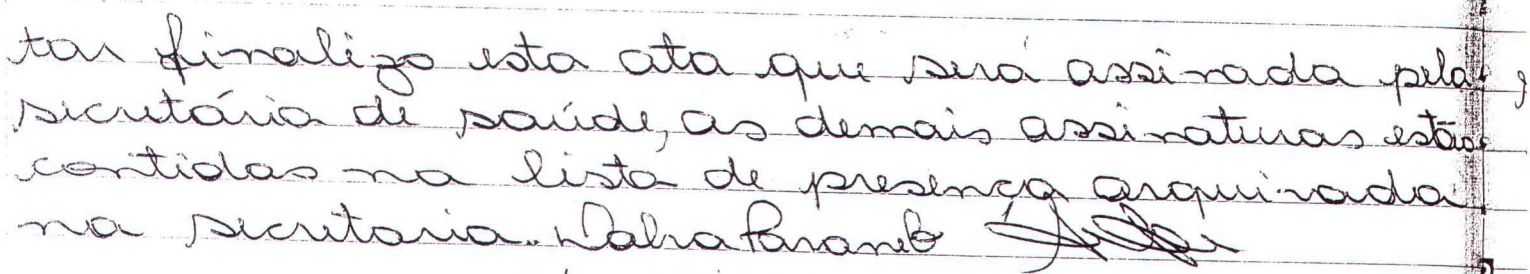 tar finalizo esta ata que será assinada pela
secretária de saúde, as demais assinaturas estão
contidas na lista de presença arquivada
na secretaria.